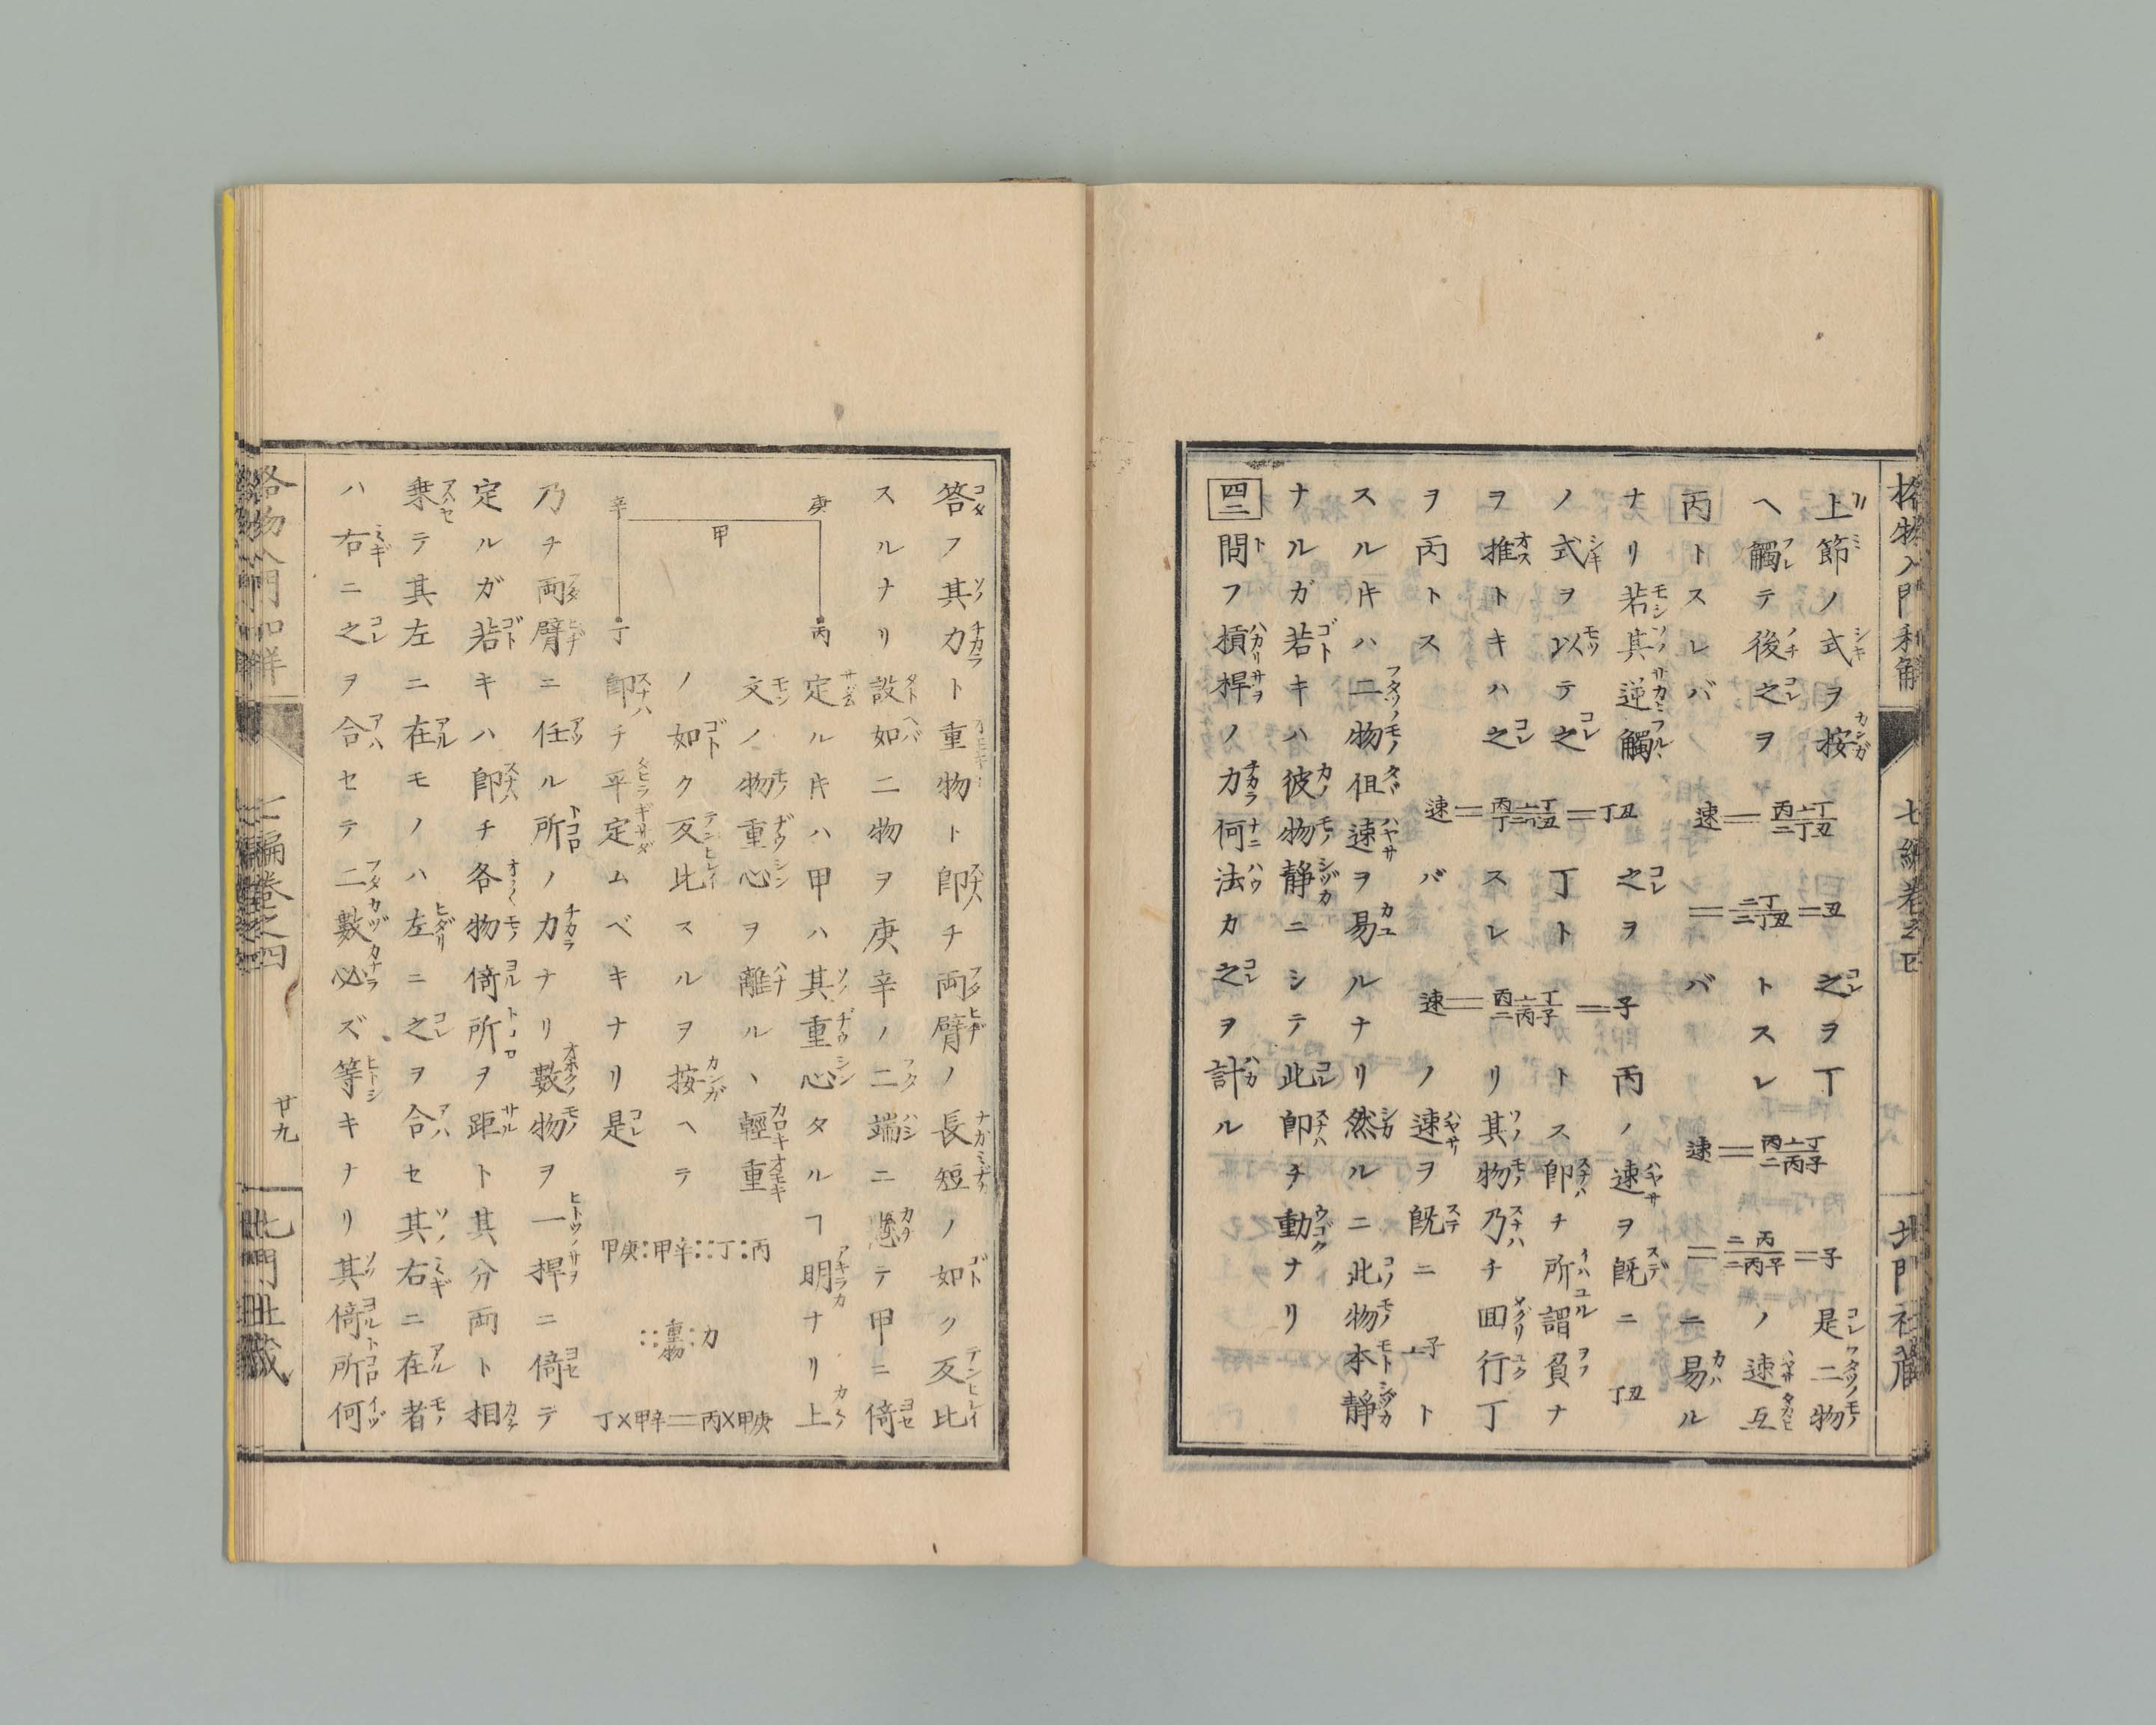 格物入門和解
七編卷之四
北門社藏
上節ノ式ヲ按ヘ觸テ後之ヲ丙トスレバ
速＝丙⊥丁／二丁丑
＝二丁／二丁丑＝丑
之ヲ丁トスレバ
速＝丙⊥丁／二丙子
＝二丙／二丙子＝子
是二物ノ速互ニ易ル
ナリ若其逆觸ノ式ヲ以テ之ヲ推トキハ之ヲ丙トス
速＝丙⊥丁／丁二丑＝丁丑
之ヲ丁トスレバ
速＝丙⊥丁／二丙子＝子
丙ノ速ヲ既ニ丁丑
トス即チ所謂負ナ
リ其物乃チ囬行丁
ノ速ヲ既ニ⊥子ト
スル片ハ二物伹速ヲ易ルナリ然ルニ此物本静
ナルガ若キハ彼物静ニシテ此即チ動ナリ
四二 問フ摃桿ノ力何法カ之ヲ計ル
答フ其力ト重物ト即チ両臂ノ長短ノ如ク反比
スルナリ設如二物ヲ庚辛ノ二端ニ懸テ甲ニ倚
庚
甲
辛
丙
丁
定ル片ハ甲ハ其重心タルヿ明ナリ上
文ノ物重心ヲ離ルヽ輕重
ノ如ク反比スルヲ按ヘテ
即チ平定ムベキナリ是
甲庚:甲辛::丁:丙
::重物:力
丁×甲辛＝丙×甲庚
乃チ両臂ニ任ル所ノ力ナリ數物ヲ一捍ニ倚テ
定ルガ若キハ即チ各物倚所ヲ距ト其分両ト相
乗テ其左ニ在モノハ左ニ之ヲ合セ其右ニ在者
ハ右ニ之ヲ合セテ二數必ズ等キナリ其倚所何
格物入門和解
七編卷之四
廿九
北門社藏